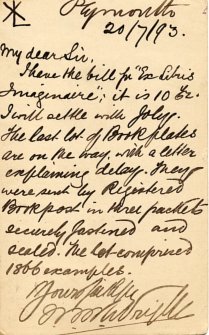 Plymouth
20/7/93.
My dear Sir,
I have the bill for "Ex Libris
Imaginaire"; it is 10
I will settle with Joly.
The last lot of Book plates
are on the way, with a letter
explaining delay. They
were sent by Registered
Book post in three packets
securely fastened and
sealed. The lot comprised
1866 examples.
Yours faithfully